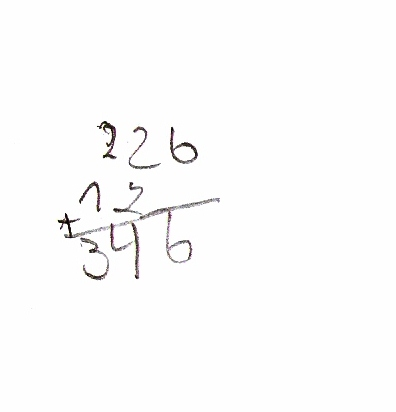 226
+ 12
346